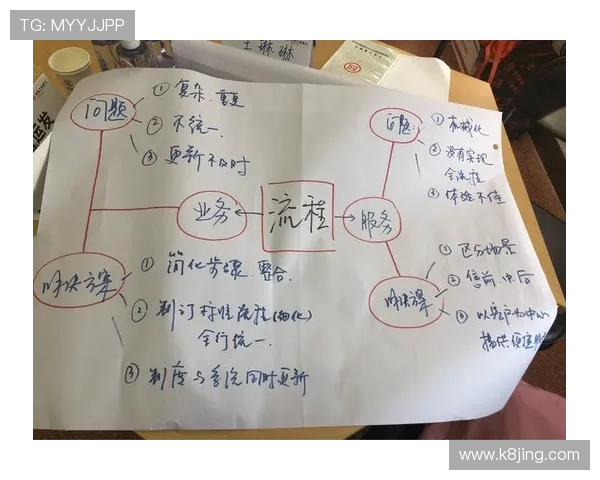 TG: MYYJJPP
王琳琳
问题
① 复杂、重复
② 不统一
③ 更新不及时
业务
流程
服务
问题:
① 机械化
② 没有实现
全流程
③ 体验不佳
解决方案
① 简化步骤、整合
② 制订标准流程(细化)
全行统一
③ 制度与系统同时更新
解决方案
① 区分场景
② 售前.中.后
③ 以客户为中心
提供便捷服
www.k8jing.com